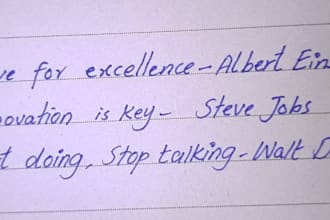 ve for excellence - Albert Ein
ovation is key - Steve Jobs
t doing, Stop talking - Walt D